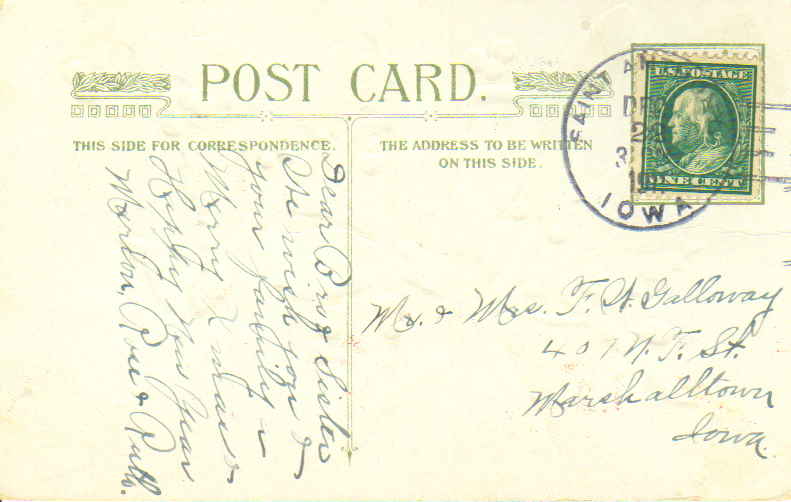 POST CARD.
THIS SIDE FOR CORRESPONDENCE.
THE ADDRESS TO BE WRITTEN
ON THIS SIDE.
SAINT AN
DEC
IOWA
U.S. POSTAGE
ONE CENT
Dear Bro & Sister
We wish you &
your family a
Merry Xmas &
Happy New Year
Marlon, Rose & Ruth.
Mr. & Mrs. F. W. Galloway
407 N. F. St.
Marshalltown
Iowa.